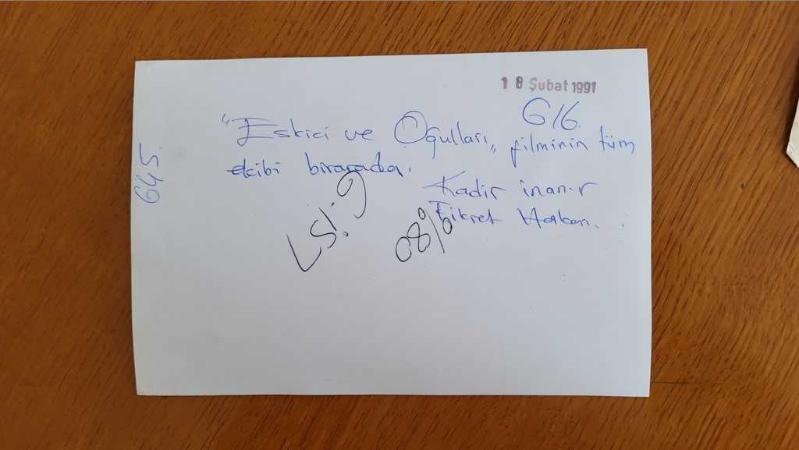 18 Şubat 1991
G16.
"Eskici ve Oğulları„ filminin tüm
ekibi birarada.
Kadir inanır
Fikret Hakan.
645.
%80